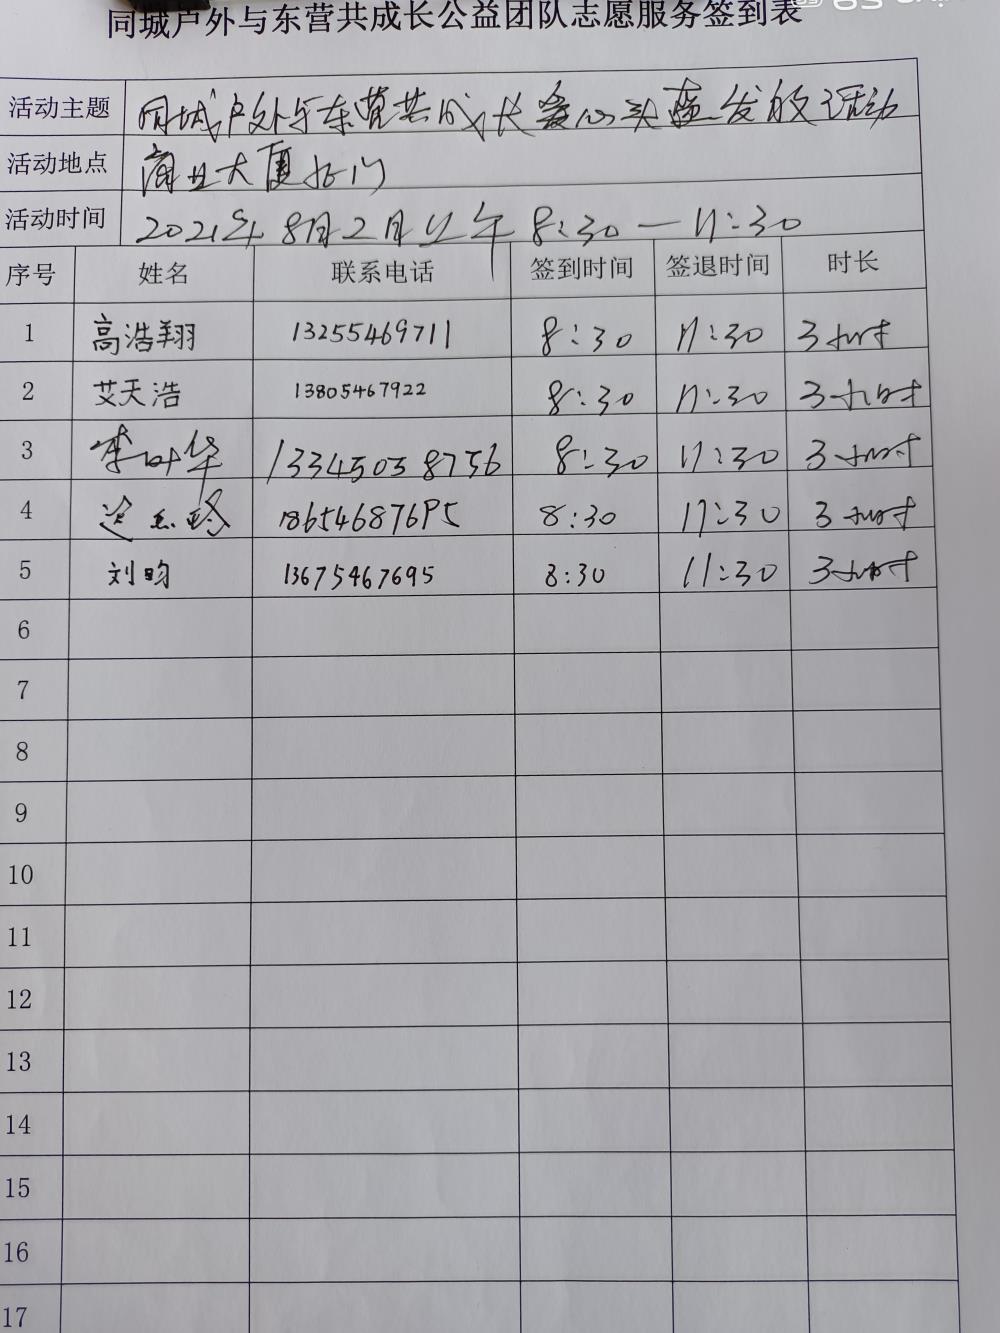 同城户外与东营共成长公益团队志愿服务签到表
活动主题 同城户外与东营共成长爱心头盔发放活动
活动地点 商业大厦北门
活动时间 2021年8月2日上午8:30—11:30
序号 姓名 联系电话 签到时间 签退时间 时长
1 高浩翔 13255469711 8:30 11:30 3小时
2 艾天浩 13805467922 8:30 11:30 3小时
3 李叶华 13345038756 8:30 11:30 3小时
4 18654687695 8:30 11:30 3小时
5 刘昀 13675467695 8:30 11:30 3小时
6
7
8
9
10
11
12
13
14
15
16
17